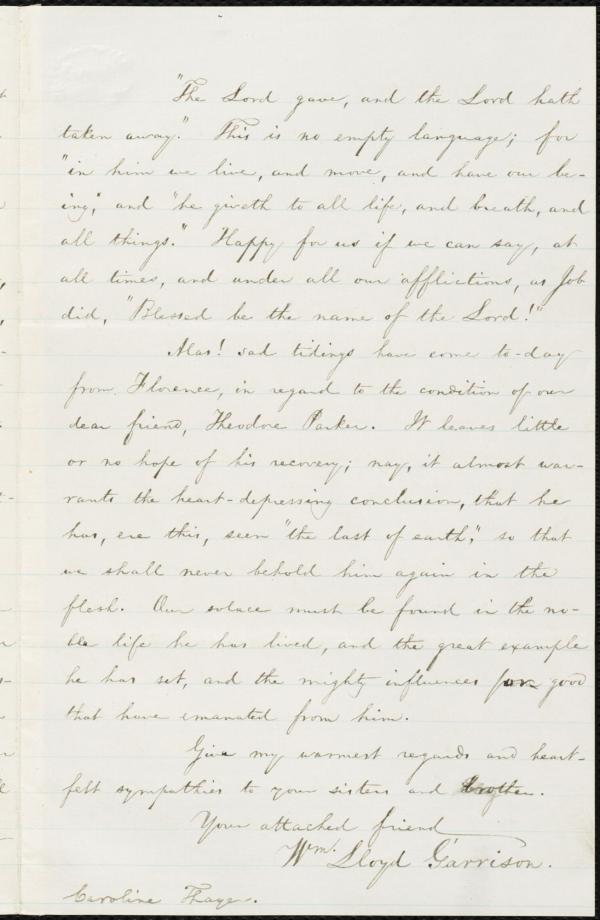 "The Lord gave, and the Lord hath
taken away." This is no empty language; for
"in him we live, and move, and have our be-
ing," and "he giveth to all life, and breath, and
all things." Happy for us if we can say, at
all times, and under all our afflictions, as Job
did, "Blessed be the name of the Lord!"
Alas! sad tidings have come to-day
from Florence, in regard to the condition of our
dear friend, Theodore Parker. It leaves little
or no hope of his recovery; nay, it almost war-
rants the heart-depressing conclusion, that he
has, ere this, seen "the last of earth," so that
we shall never behold him again in the
flesh. Our solace must be found in the no-
ble life he has lived, and the great example
he has set, and the mighty influences for good
that have emanated from him.
Give my warmest regards and heart-
felt sympathies to your sisters and brother.
Your attached friend
Wm. Lloyd Garrison.
Caroline Thayer.